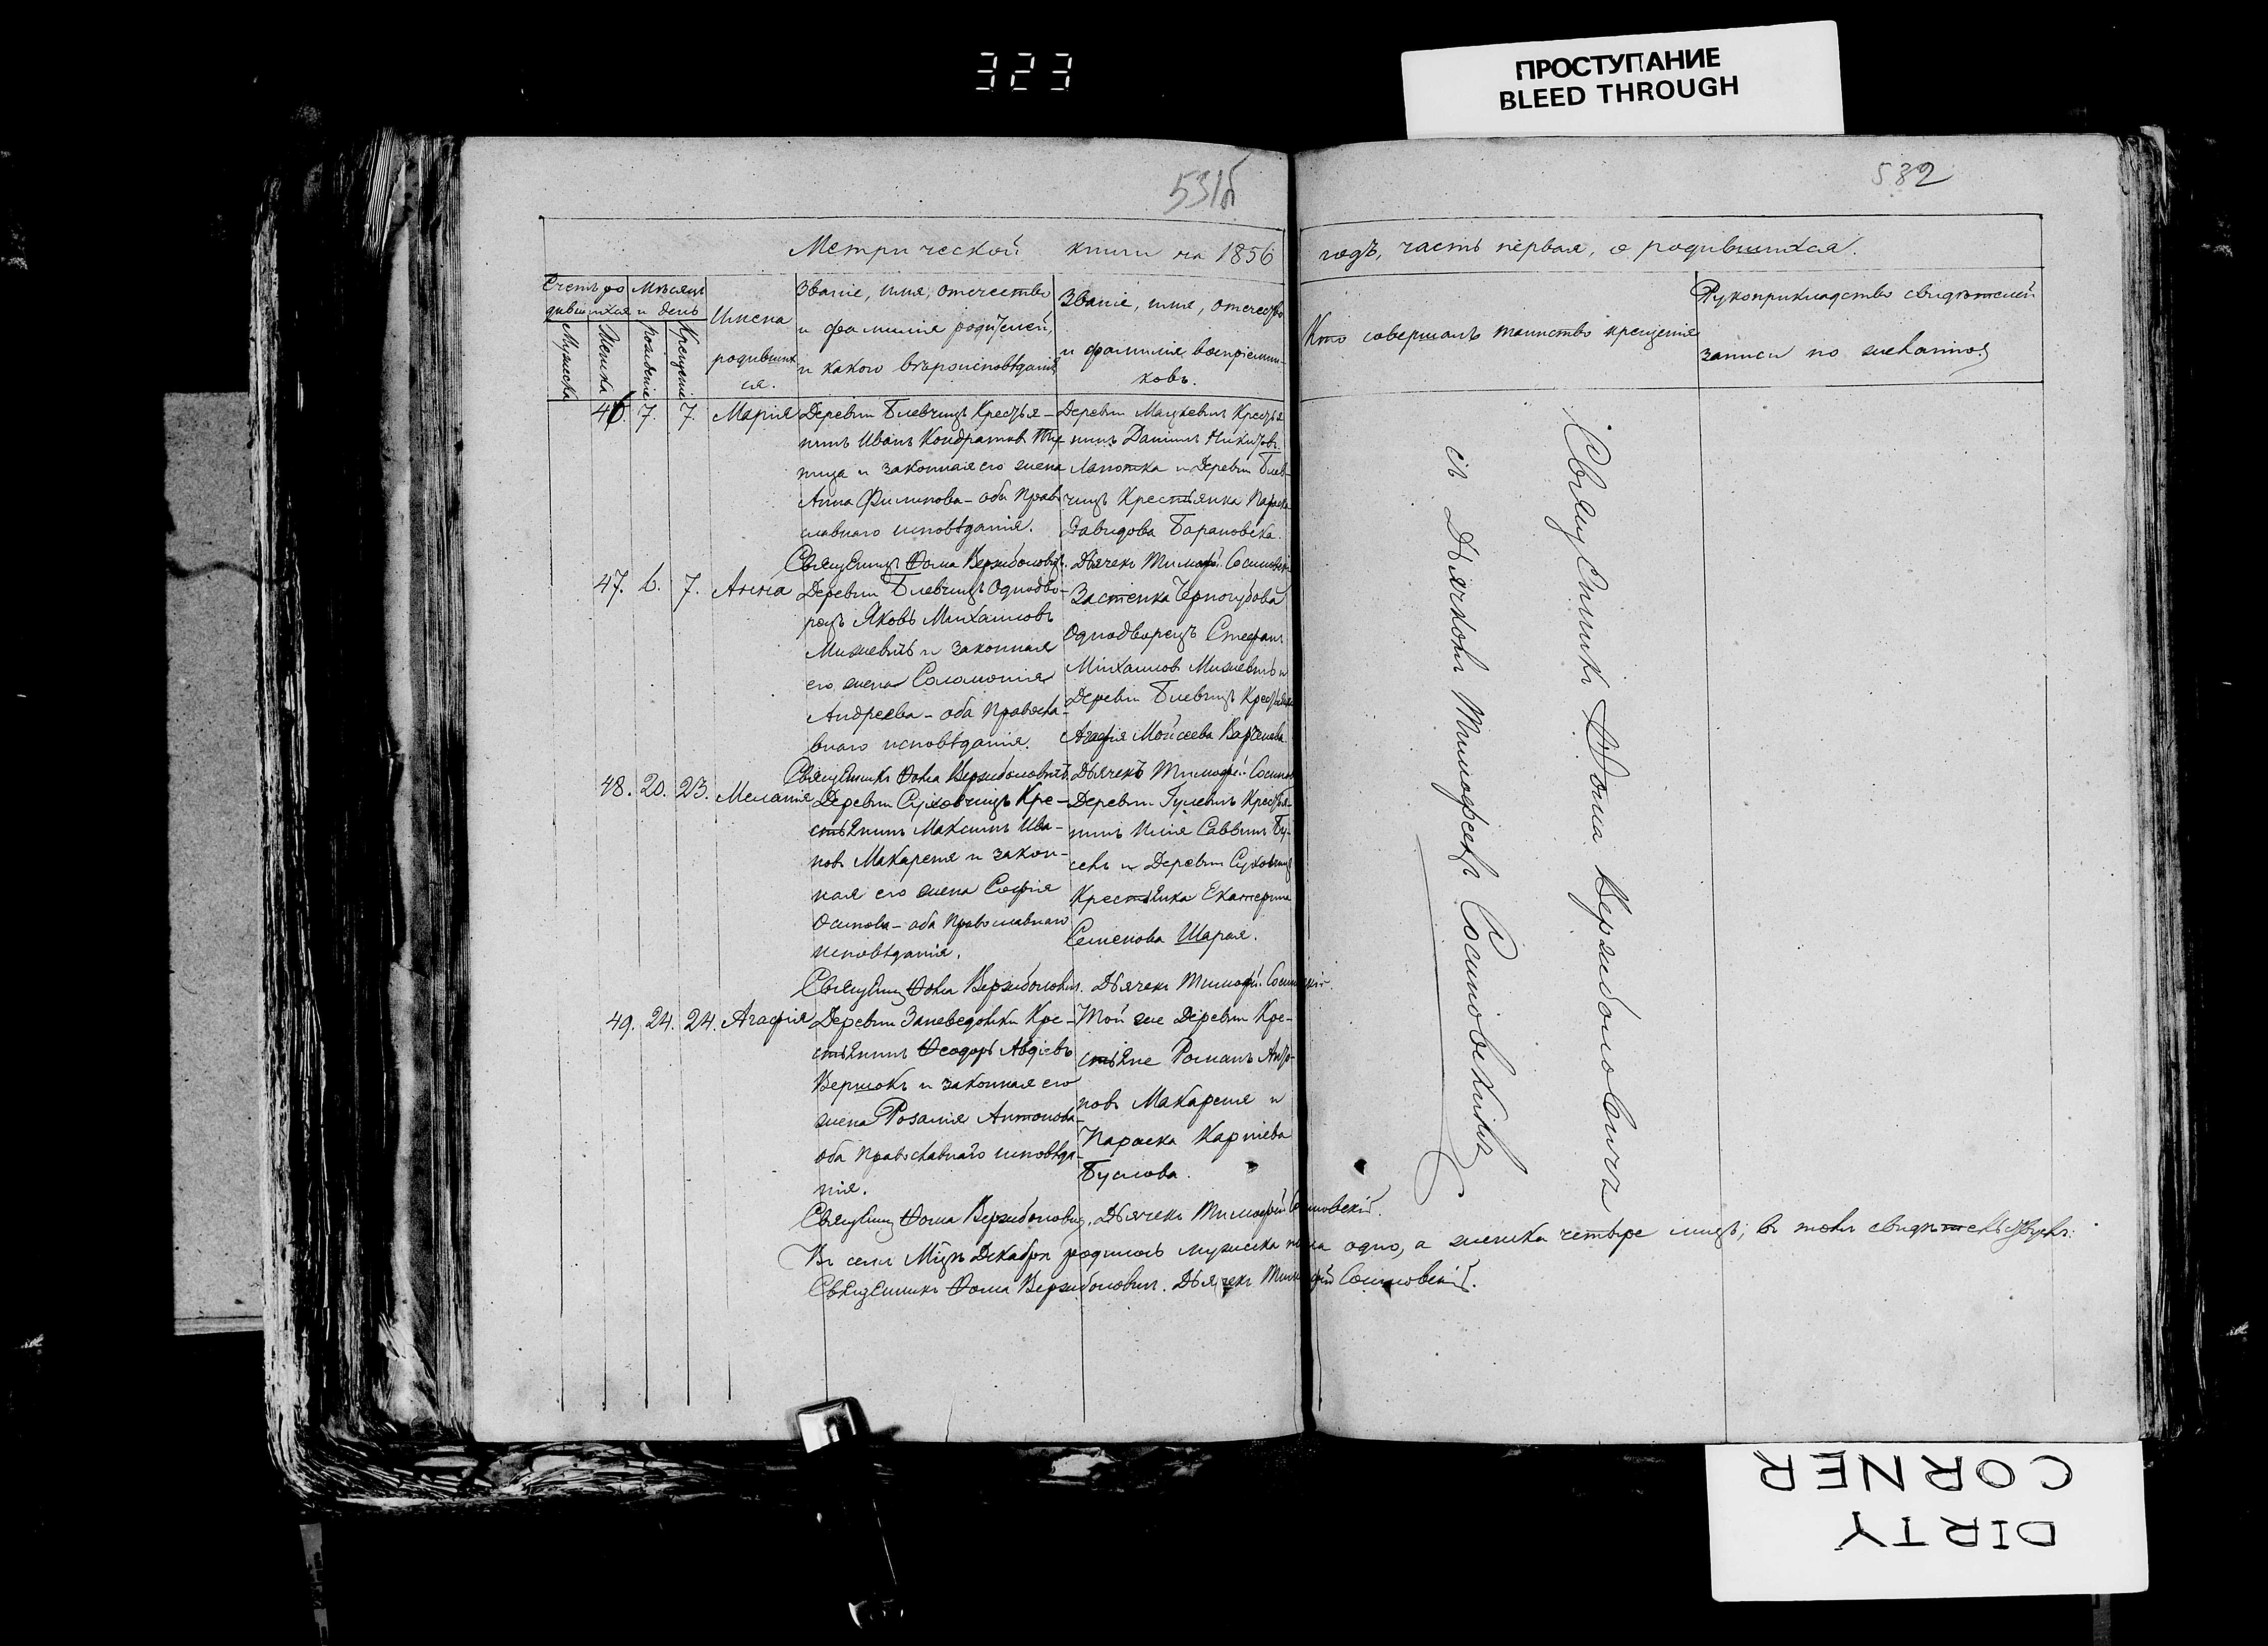 323
ПРОСТУПАНИЕ
BLEED THROUGH
531б
532
Метрической книги на 1856 годъ, часть первая, о родившихся.
Счетъ родившихся
Мужеска
Женска
Мѣсяцъ и день
рожденія
Крещенія
Имена
родивших
ся.
Званіе, имя, отечество
и фамилія родителей,
и какого вѣроисповѣданія
Званіе, имя, отечество
и фамилія воспріемни-
ковъ.
Кто совершалъ таинство крещенія
Рукоприкладство свидѣтелей
записи по желанію
46. 7. 7. Марія
Деревни Блевчицъ Кресть-
янинъ Иванъ Кондратовъ
и законная его жена
Анна Филипова - оба Право
славнаго исповѣданія.
Деревни Мацкевичъ Крестья
нинъ Даніилъ Никитовъ
Лапотка и Деревни Блев-
чицъ Крестьянка Параска
Давидова Барановска.
Священникъ Фома Вержболовичъ. Дьячекъ Тимофей Сосиновскій
47. 6. 7. Анна
Деревни Блевчицъ Однодво-
рецъ Яковъ Михаиловъ
Мижевичъ и законная
его жена Соломонія
Андреева - оба Правосла-
внаго исповѣданія.
Застенка Черногубова
Однодворецъ Стефанъ
Михаиловъ Мижевичъ и
Деревни Блевчицъ Крестьянка
Агафія Мойсеева
Священникъ Фома Вержболовичъ. Дьячекъ Тимофей Сосинов
48. 20. 23. Меланія
Деревни Суховчицъ Кре-
стьянинъ Максимъ Ива-
новъ Макареня и закон-
ная его жена Софія
Осипова - оба Православнаго
исповѣданія.
Деревни Гулевичъ Крестья-
нинъ Илія Саввинъ Бу-
сень и Деревни Суховчицъ
Крестьянка Екатерина
Семенова Шарая.
Священникъ Фома Вержболовичъ. Дьячекъ Тимофей Сосиновскій.
49. 24. 24. Агафія
Деревни Заневедовки Кре-
стьянинъ Феодоръ Авдіевъ
Вершокъ и законная его
жена Розалія Антонова-
оба Православнаго исповѣда-
нія.
Той же Деревни Кре-
стьяне Романъ Анто-
новъ Макареня и
Параска Карпіева
Буслова.
Священникъ Фома Вержболовичъ, Дьячекъ Тимофей Сосиновскій.
Въ семъ М҃цѣ Декабрѣ родилось мужеска пола одно, а женска четыре лицъ; въ томъ свидѣтельствуемъ.
Священникъ Фома Вержболовичъ. Дьячекъ Тимофей Сосиновскій.
Священникъ Фома Вержболовичъ
съ Дьячкомъ Тимофеемъ Сосиновскимъ
DIRTY
CORNER